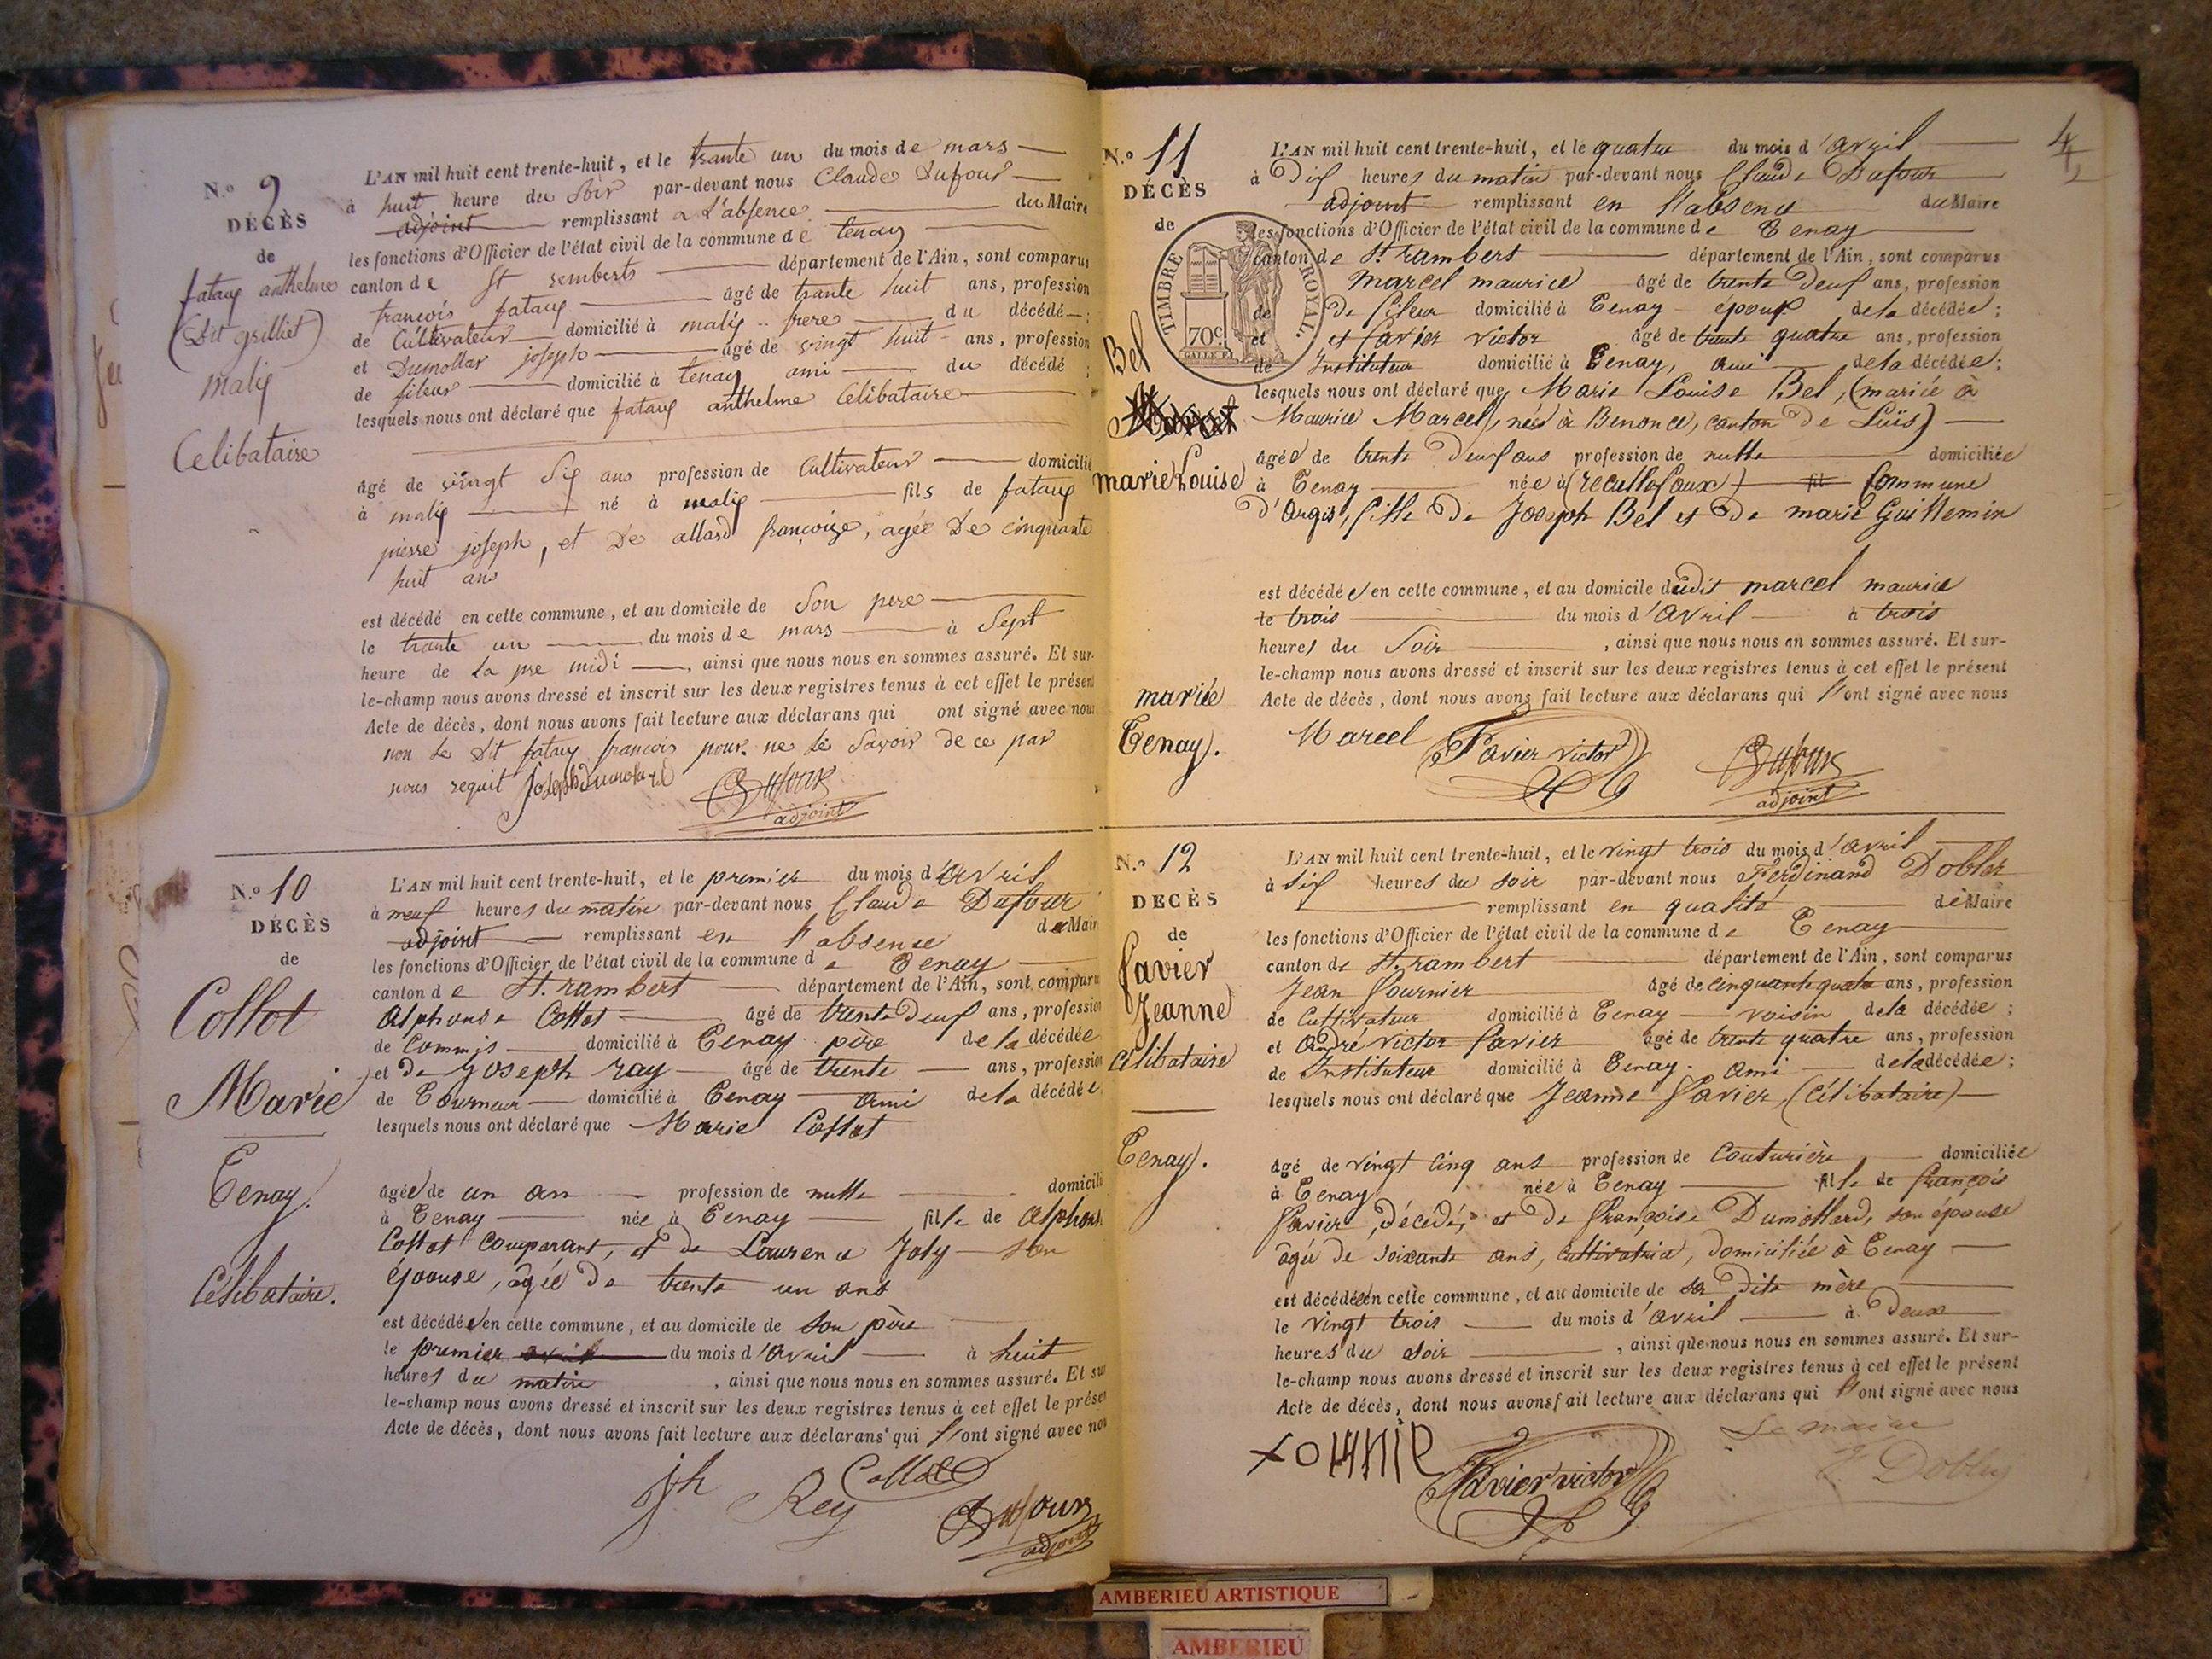 N.o 9
DÉCÈS
de
fataux anthelme
(Dit grilliet)
malix
Celibataire
L'AN mil huit cent trente-huit, et le trante un du mois de mars
à huit heure du soir par-devant nous Claude Dufour
adjoint remplissant a L'absence du Maire
les fonctions d'Officier de l'état civil de la commune de tenay
canton de St remberts département de l'Ain, sont comparus
francois fataux âgé de trante huit ans, profession
de Cultivateur domicilié à malix frere du décédé ;
et Dumollar joseph âgé de vingt huit ans, profession
de fileur domicilié à tenay ami du décédé ;
lesquels nous ont déclaré que fataux anthelme Celibataire
âgé de vingt six ans profession de Cultivateur domicilié
à malix né à malix fils de fataux
pierre joseph, et De allard françoize, agée De cinquante
huit ans
est décédé en cette commune, et au domicile de Son pere
le trante un du mois de mars à Sept
heure de La pre midi, ainsi que nous nous en sommes assuré. Et sur-
le-champ nous avons dressé et inscrit sur les deux registres tenus à cet effet le présent
Acte de décès, dont nous avons fait lecture aux déclarans qui ont signé avec nous
non Le Dit fataux francois pour ne Le Savoir de ce par
nous requit Joseph dumolard Dufour
adjoint
N.o 10
DÉCÈS
de
Collot
Marie
Tenay.
Célibataire.
L'AN mil huit cent trente-huit, et le premier du mois d'avril
à neuf heures du matin par-devant nous Claude Dufour
adjoint remplissant en l'absence du Mair
les fonctions d'Officier de l'état civil de la commune de Tenay
canton de St. rambert département de l'Ain, sont comparu
Alphonse Collot âgé de trente Deux ans, profession
de Commis domicilié à Tenay père de la décédée
et De Joseph ray âgé de trente ans, profession
de Tourneur domicilié à Tenay ami de la décédée
lesquels nous ont déclaré que Marie Collot
âgée de un an profession de nulle domicili
à Tenay née à Tenay fille de Alphons
Collot Comparant, et de Laurence Joly son
épouse, agée De trente un ans
est décédée en cette commune, et au domicile de son père
le premier du mois d'avril à huit
heures du matin, ainsi que nous nous en sommes assuré. Et sur
le-champ nous avons dressé et inscrit sur les deux registres tenus à cet effet le prése
Acte de décès, dont nous avons fait lecture aux déclarans qui l'ont signé avec nou
jh Rey Collot Dufour
adjoint
4
N.o 11
DÉCÈS
de
TIMBRE ROYAL
70c.
Bel
Marcel
marie Louise
mariée
Tenay.
L'AN mil huit cent trente-huit, et le quatre du mois d'avril
à Dix heures du matin par-devant nous Claude Dufour
adjoint remplissant en l'absence du Maire
les fonctions d'Officier de l'état civil de la commune de Tenay
canton de St. rambert département de l'Ain, sont comparus
Marcel maurice âgé de trente Deux ans, profession
de De fileur domicilié à Tenay époux de la décédée ;
et et favier victor âgé de trente quatre ans, profession
de Instituteur domicilié à Tenay, ami de la décédée ;
lesquels nous ont déclaré que Marie Louise Bel, (mariée à
Maurice Marcel, née à Benonce, canton De Luïs)
âgée de trente Deux ans profession de nulle domiciliée
à Tenay née à (reculle faux) fil Commune
D'Argis, fille De Joseph Bel et De marie Guillemin
est décédée en cette commune, et au domicile dudit marcel maurice
le trois du mois d'avril à trois
heures du Soir, ainsi que nous nous en sommes assuré. Et sur-
le-champ nous avons dressé et inscrit sur les deux registres tenus à cet effet le présent
Acte de décès, dont nous avons fait lecture aux déclarans qui l'ont signé avec nous
Marcel Favier victor Dufour
adjoint
N.o 12
DÉCÈS
de
favier
Jeanne
célibataire
Tenay.
L'AN mil huit cent trente-huit, et le vingt trois du mois d'avril
à six heures du soir par-devant nous Ferdinand Dobler
remplissant en qualité de Maire
les fonctions d'Officier de l'état civil de la commune de Tenay
canton de St. rambert département de l'Ain, sont comparus
Jean fournier âgé de cinquante quatre ans, profession
de Cultivateur domicilié à Tenay voisin de la décédée ;
et André victor favier âgé de trente quatre ans, profession
de Instituteur domicilié à Tenay. ami de la décédée ;
lesquels nous ont déclaré que Jeanne favier, (Célibataire)
âgé de vingt cinq ans profession de Couturière domiciliée
à Tenay née à Tenay fille de françois
favier, Décédé, et De françoise Dumollard, son épouse
agée de soixante ans, cultivatrice, domiciliée à Tenay
est décédée en cette commune, et au domicile de sa Dite mère
le vingt trois du mois d'avril à Deux
heures du soir, ainsi que nous nous en sommes assuré. Et sur-
le-champ nous avons dressé et inscrit sur les deux registres tenus à cet effet le présent
Acte de décès, dont nous avons fait lecture aux déclarans qui l'ont signé avec nous
Le maire
Favier victor F. Dobler
AMBERIEU ARTISTIQUE
AMBERIEU